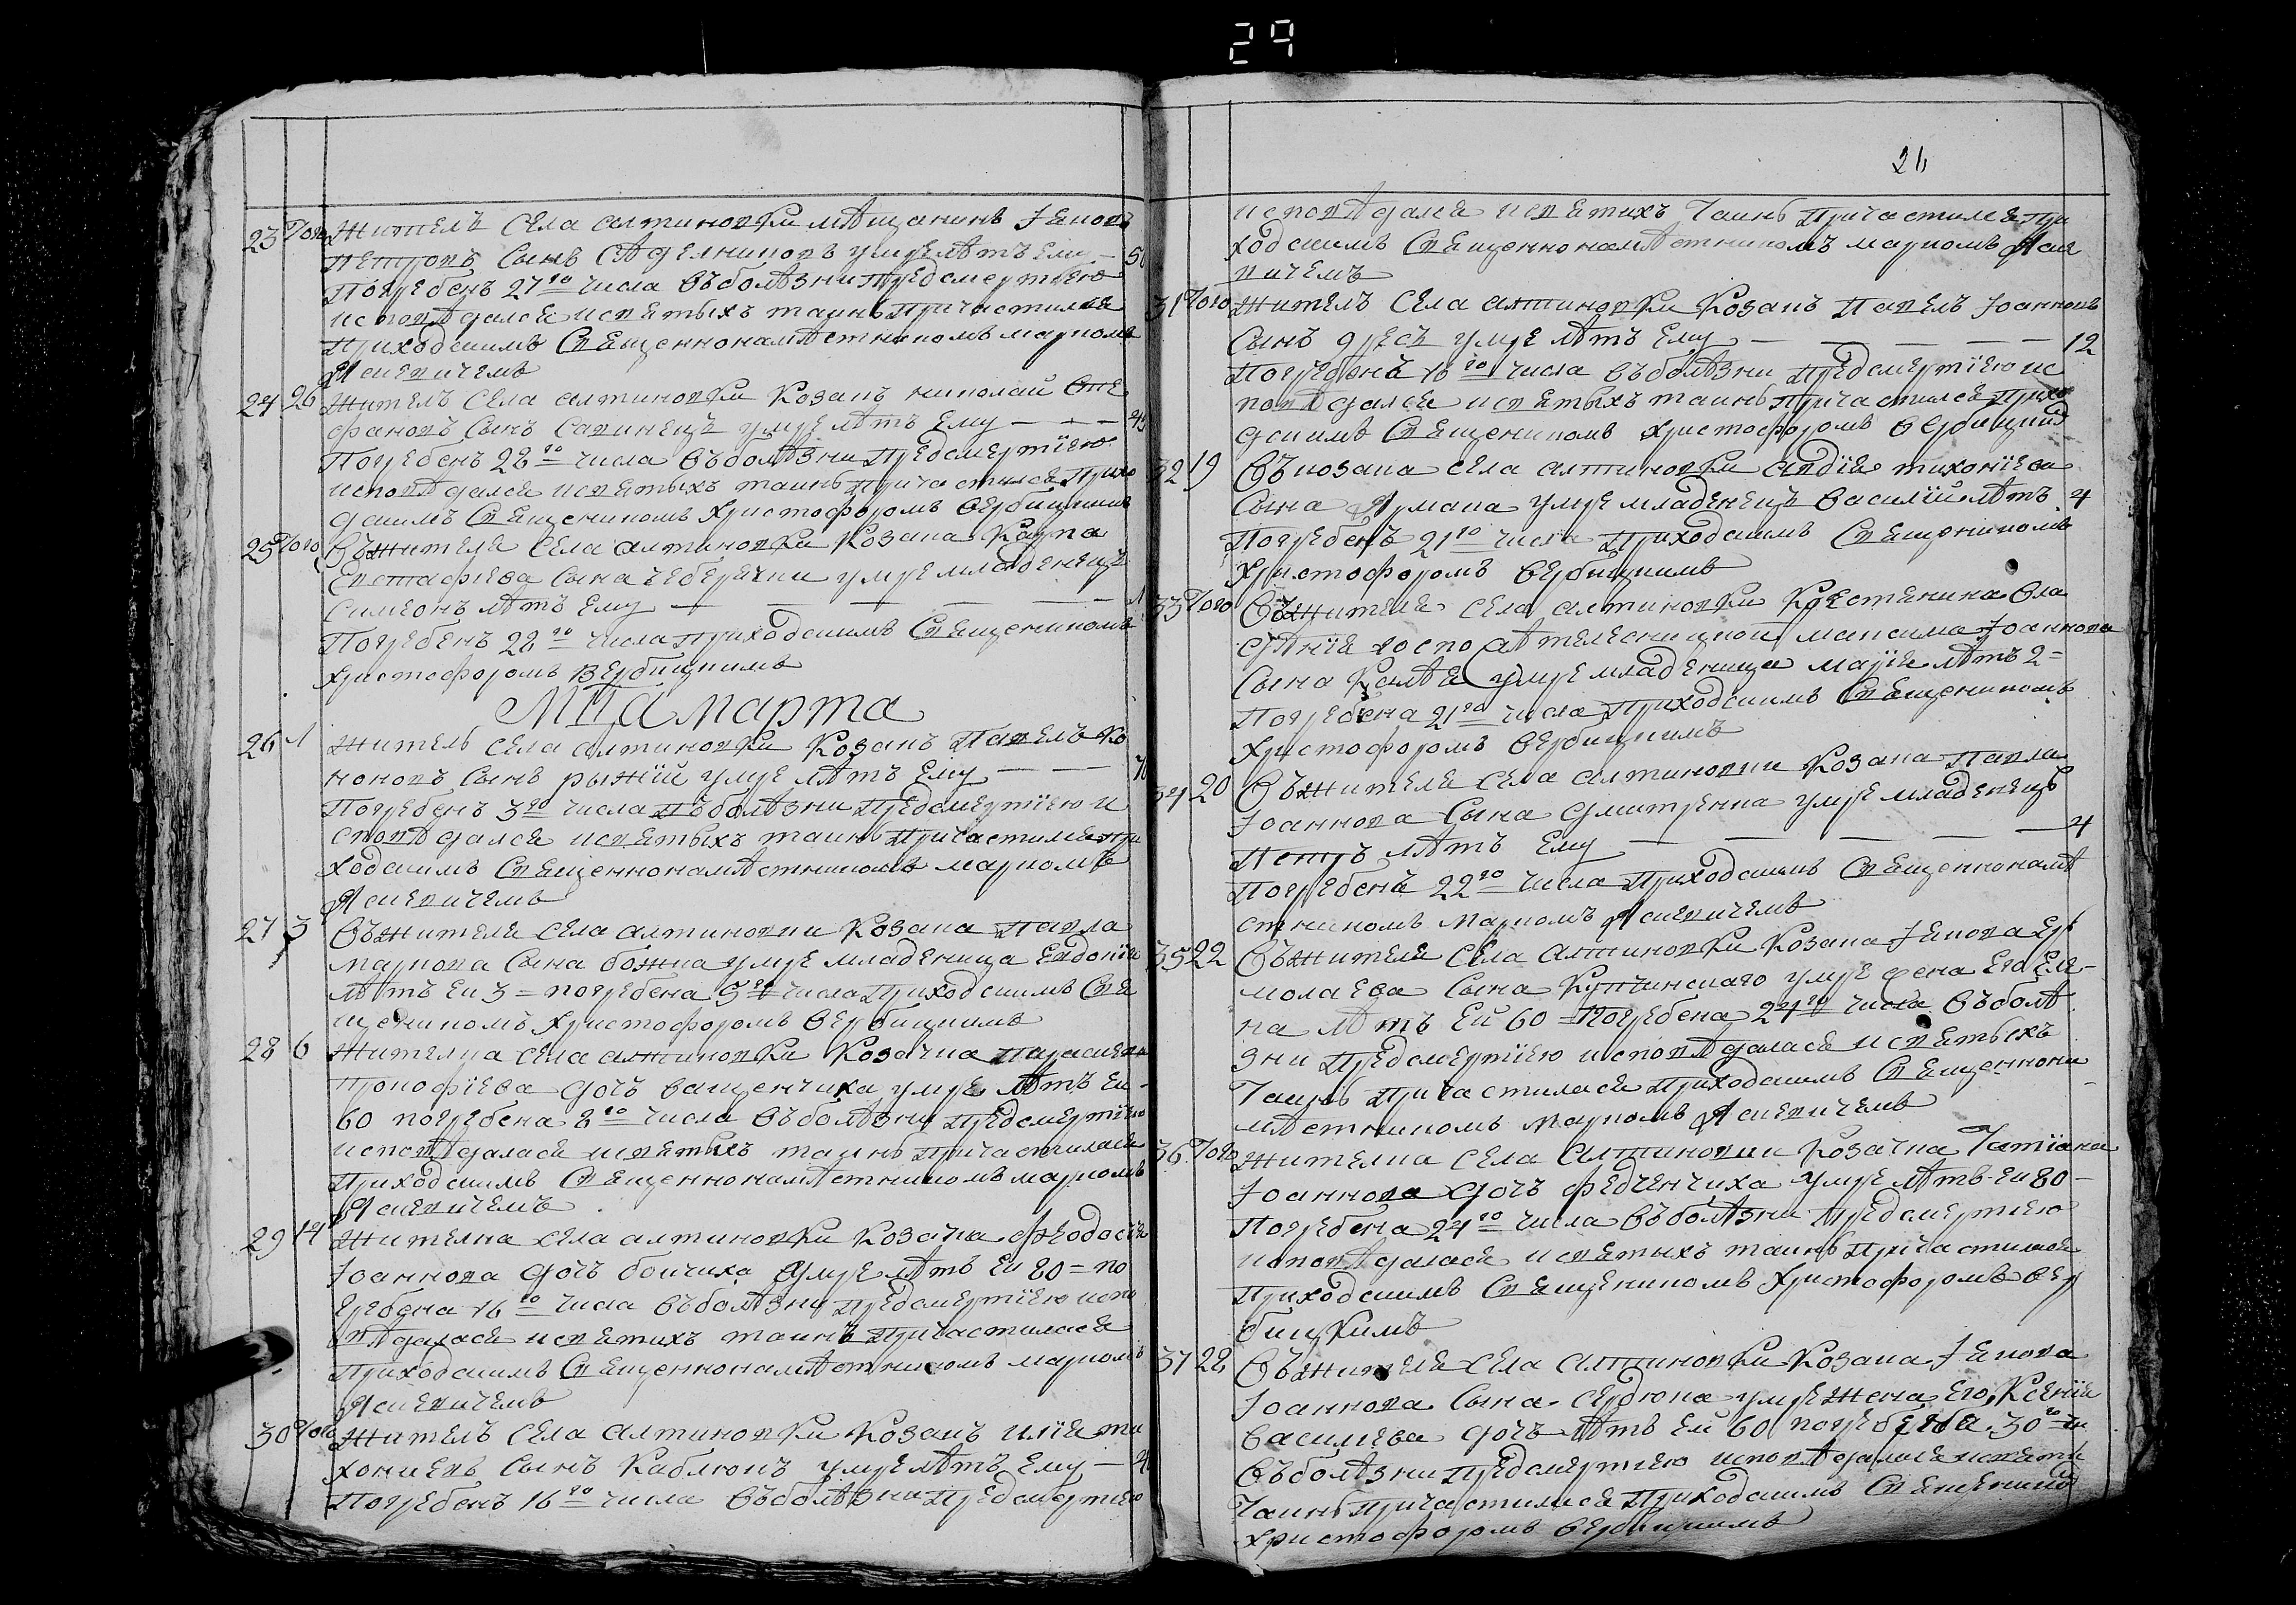 29
23 того Житель села алтиновки мѣщанинъ Іаковъ
петровъ сынъ сѣделниковъ умре лѣтъ ему — 50
Погребенъ 27го числа въ болѣзни предсмертнею
исповѣдался и святыхъ таинъ причастился
приходскимъ священнонамѣстникомъ маркомъ
Яснєвичемъ
24 26 Житель села алтиновки козакъ николай Сте
фановъ сынъ савинецъ умре лѣтъ ему — — —
Погребенъ 28го числа въ болѣзни предсмертїею
исповѣдался и святыхъ таинъ причастился прихо
дскимъ священникомъ Христофоромъ вербицкимъ
25 того Въ жителя села алтиновки козака Карпа
Евстафиева сына чеберячки умре младенецъ
Симеонъ лѣтъ ему — — — — — 1
Погребенъ 28го числа приходскимъ священникомъ
Христофоромъ Вербицкимъ
Мца марта
26 1 Житель села алтиновки козакъ Павелъ ко
ноновъ сынъ рыжїй умре лѣтъ ему — — 70
Погребенъ 3го числа въ болѣзни предсмертїею и
сповѣдался и святыхъ таинъ причастился при
ходскимъ священнонамѣстникомъ маркомъ
Яснєвичемъ
27 3 Въ жителя села алтиновки козака павла
маркова сына божка умре младеница Евдокїя
лѣтъ ей 3 = погребена 5го числа приходскимъ свя
щеникомъ Христофоромъ вербицкимъ
28 6 Жителка села алтиновки козачка параскева
прокофїева дочъ ващенчиха умре лѣтъ ей
60 погребена 8го числа въ болѣзни предсмертїею
исповѣдалася и святыхъ таинъ причастилася
приходскимъ священнонамѣстникомъ маркомъ
Яснєвичемъ
29 14 Жителка села алтиновки козачка феодосїя
Іоаннова дочъ бойчиха умре лѣтъ ей 80 = по
гребена 16го числа въ болѣзни предсмертїею испо
вѣдалася и святихъ таинъ причастилася
приходскимъ священнонамѣстникомъ маркомъ
Яснєвичемъ
30 того Житель села алтиновки козакъ илїя ти
хониевъ сынъ Каблюкъ умре лѣтъ ему —
Погребенъ 16го числа въ болѣзни предсмертїею
исповѣдался и святихъ Таинъ причастился при
ходскимъ священнонамѣстникомъ маркомъ Ясне
вичемъ
31 того Житель села алтиновки козакъ павелъ Іоанновъ
сынъ умре лѣтъ ему — — — — — 12
погребенъ 16го числа въ болѣзни предсмертїею ис
повѣдался и святыхъ таинъ причастился прихо
дскимъ священикомъ христофоромъ вербицкимъ
32 19 Въ козака села алтиновки авдїя тихонїева
сына Ярмака умре младенецъ василїй лѣтъ 4
Погребенъ 21го числа приходскимъ священикомъ
Христофоромъ вербицкимъ
33 того Въ жителя села алтиновки крестянина вла
дѣнїя госпо максима Іоаннова
сына Каляѣ умре младеница марїя лѣтъ 2 =
погребена 21го числа приходскимъ священикомъ
Христофоромъ вербицкимъ
34 20 Въ жителя села алтиновки козака павла
Іоаннова сына дмитренка умре младенецъ
петръ лѣтъ ему — — — — — 4
Погребенъ 22го числа приходскимъ священнонамѣ
стникомъ маркомъ Яснєвичемъ
35 22 Въ жителя села алтиновки козака Іакова Ер
молаева сына Купчинского умре жена его Еле
на лѣтъ ей 60 = Погребена 24го числа въ болѣ
зни предсмертїею исповѣдалася и святыхъ
Таинъ причастилася приходскимъ священнона
мѣстникомъ маркомъ Яснєвичемъ
36 того Жителка села Алтиновки козачка Татїана
Іоаннова дочъ федченчиха умре лѣтъ ей 80 —
Погребена 24го числа въ болѣзни предсмертїею
исповѣдалася и святыхъ таинъ причастилася
приходскимъ священикомъ Христофоромъ вер
бицкимъ
37 28 Въ жителя села алтиновки козака Іакова
Іоаннова сына сердюка умре жена его Ксенїя
василиева дочъ лѣтъ ей 60 погребена 30го ч
въ болѣзни предсмертїею исповѣдалася и святи
Таинъ причастилася приходскимъ священикомъ
Христофоромъ вербицкимъ